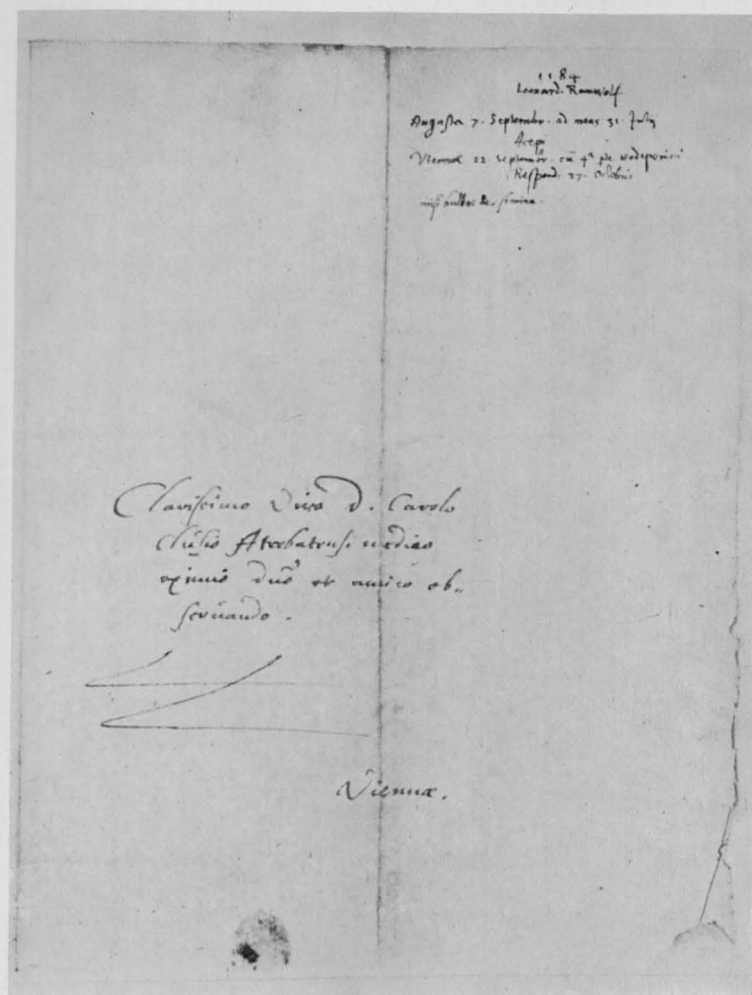 1184
Leonard. Rauwolf
Augusta 7. Septembr. ad meas 31. Julij
Accepi
Viennae 22 Septembr. cū 4ᵃ
Respond. 27. Octobris
bulbos semina.
Clarissimo Viro D. Carolo
Clusio Atrebatensi medico
eximio Dnō et amico ob„
seruando.
Viennæ.